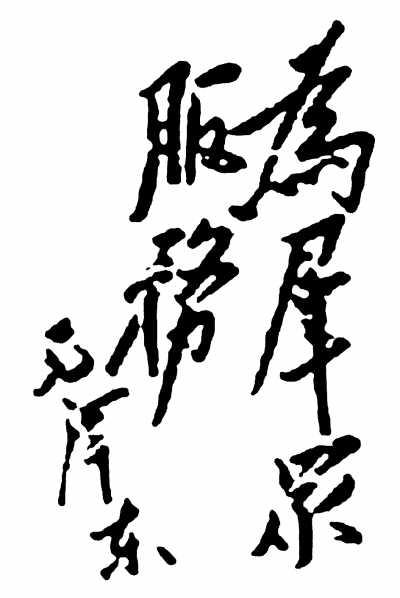 為羣众
服務
毛澤东